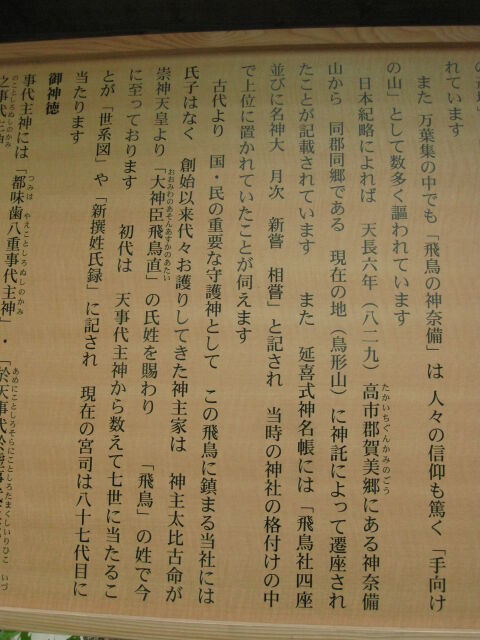 れています
また 万葉集の中でも「飛鳥の神奈備」は 人々の信仰も篤く「手向け
の山」として数多く謳われています
日本紀略によれば 天長六年(八二九)高市郡賀美郷にある神奈備
たかいちぐんかみのごう
山から 同郡同郷である 現在の地(鳥形山)に神託によって遷座され
たことが記載されています また 延喜式神名帳には「飛鳥社四座
並びに名神大 月次 新嘗 相嘗」と記され 当時の神社の格付けの中
で上位に置かれていたことが伺えます
古代より 国・民の重要な守護神として この飛鳥に鎮まる当社には
氏子はなく 創始以来代々お護りしてきた神主家は 神主太比古命が
崇神天皇より「大神臣飛鳥直」の氏姓を賜わり 「飛鳥」の姓で今
おおみわのあそんあすかのあたい
に至っております 初代は 天事代主神から数えて七世に当たるこ
とが「世系図」や「新撰姓氏録」に記され 現在の宮司は八十七代目に
当たります
御神徳
事代主神には「都味歯八重事代主神」・「
ことしろぬしのかみ
つみは やえことしろぬしのかみ
あめにことしろそらにことしろたまくしいりひこ いづ